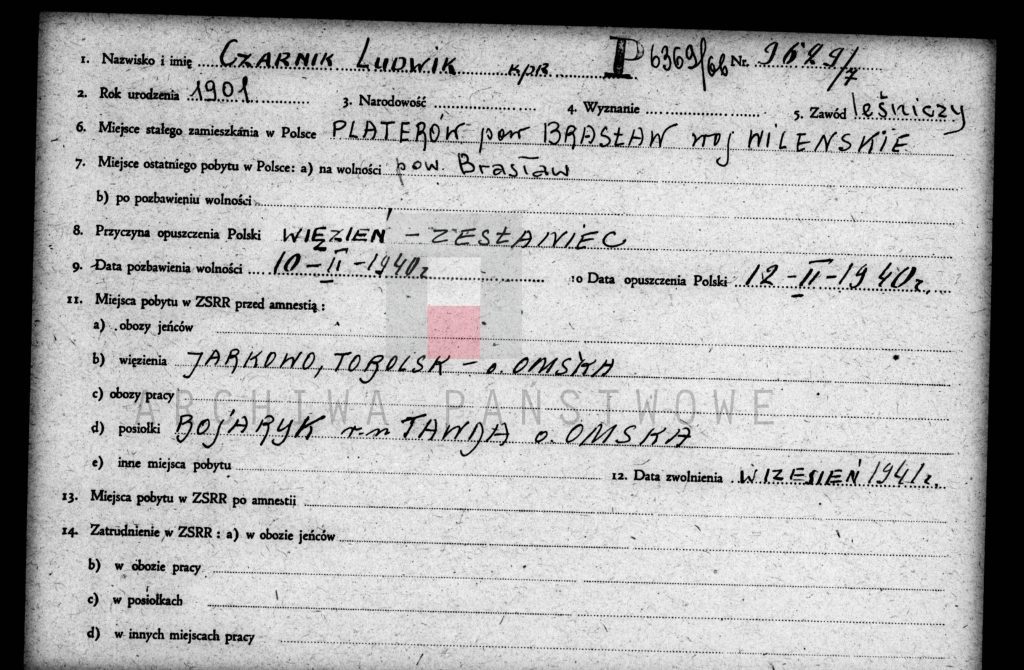 1. Nazwisko i imię CZARNIK LUDWIK kpr P 6369/66 Nr. 9629/7
2. Rok urodzenia 1901 3. Narodowość 4. Wyznanie 5. Zawód leśniczy
6. Miejsce stałego zamieszkania w Polsce PLATERÓW pow BRASŁAW woj WILEŃSKIE
7. Miejsce ostatniego pobytu w Polsce: a) na wolności pow. Brasław
b) po pozbawieniu wolności
8. Przyczyna opuszczenia Polski WIĘZIEŃ – ZESŁANIEC
9. Data pozbawienia wolności 10–II–1940r 10 Data opuszczenia Polski 12–II–1940r.
11. Miejsca pobytu w ZSRR przed amnestią:
a) obozy jeńców
b) więzienia JARKOWO, TOBOLSK – o. OMSKA
c) obozy pracy
ARCHIWA PAŃSTWOWE
d) posiołki BOJARYK r.n TAWDA o. OMSKA
e) inne miejsca pobytu 12. Data zwolnienia WRZESIEŃ 1941r.
13. Miejsca pobytu w ZSRR po amnestii
14. Zatrudnienie w ZSRR: a) w obozie jeńców
b) w obozie pracy
c) w posiołkach
d) w innych miejscach pracy